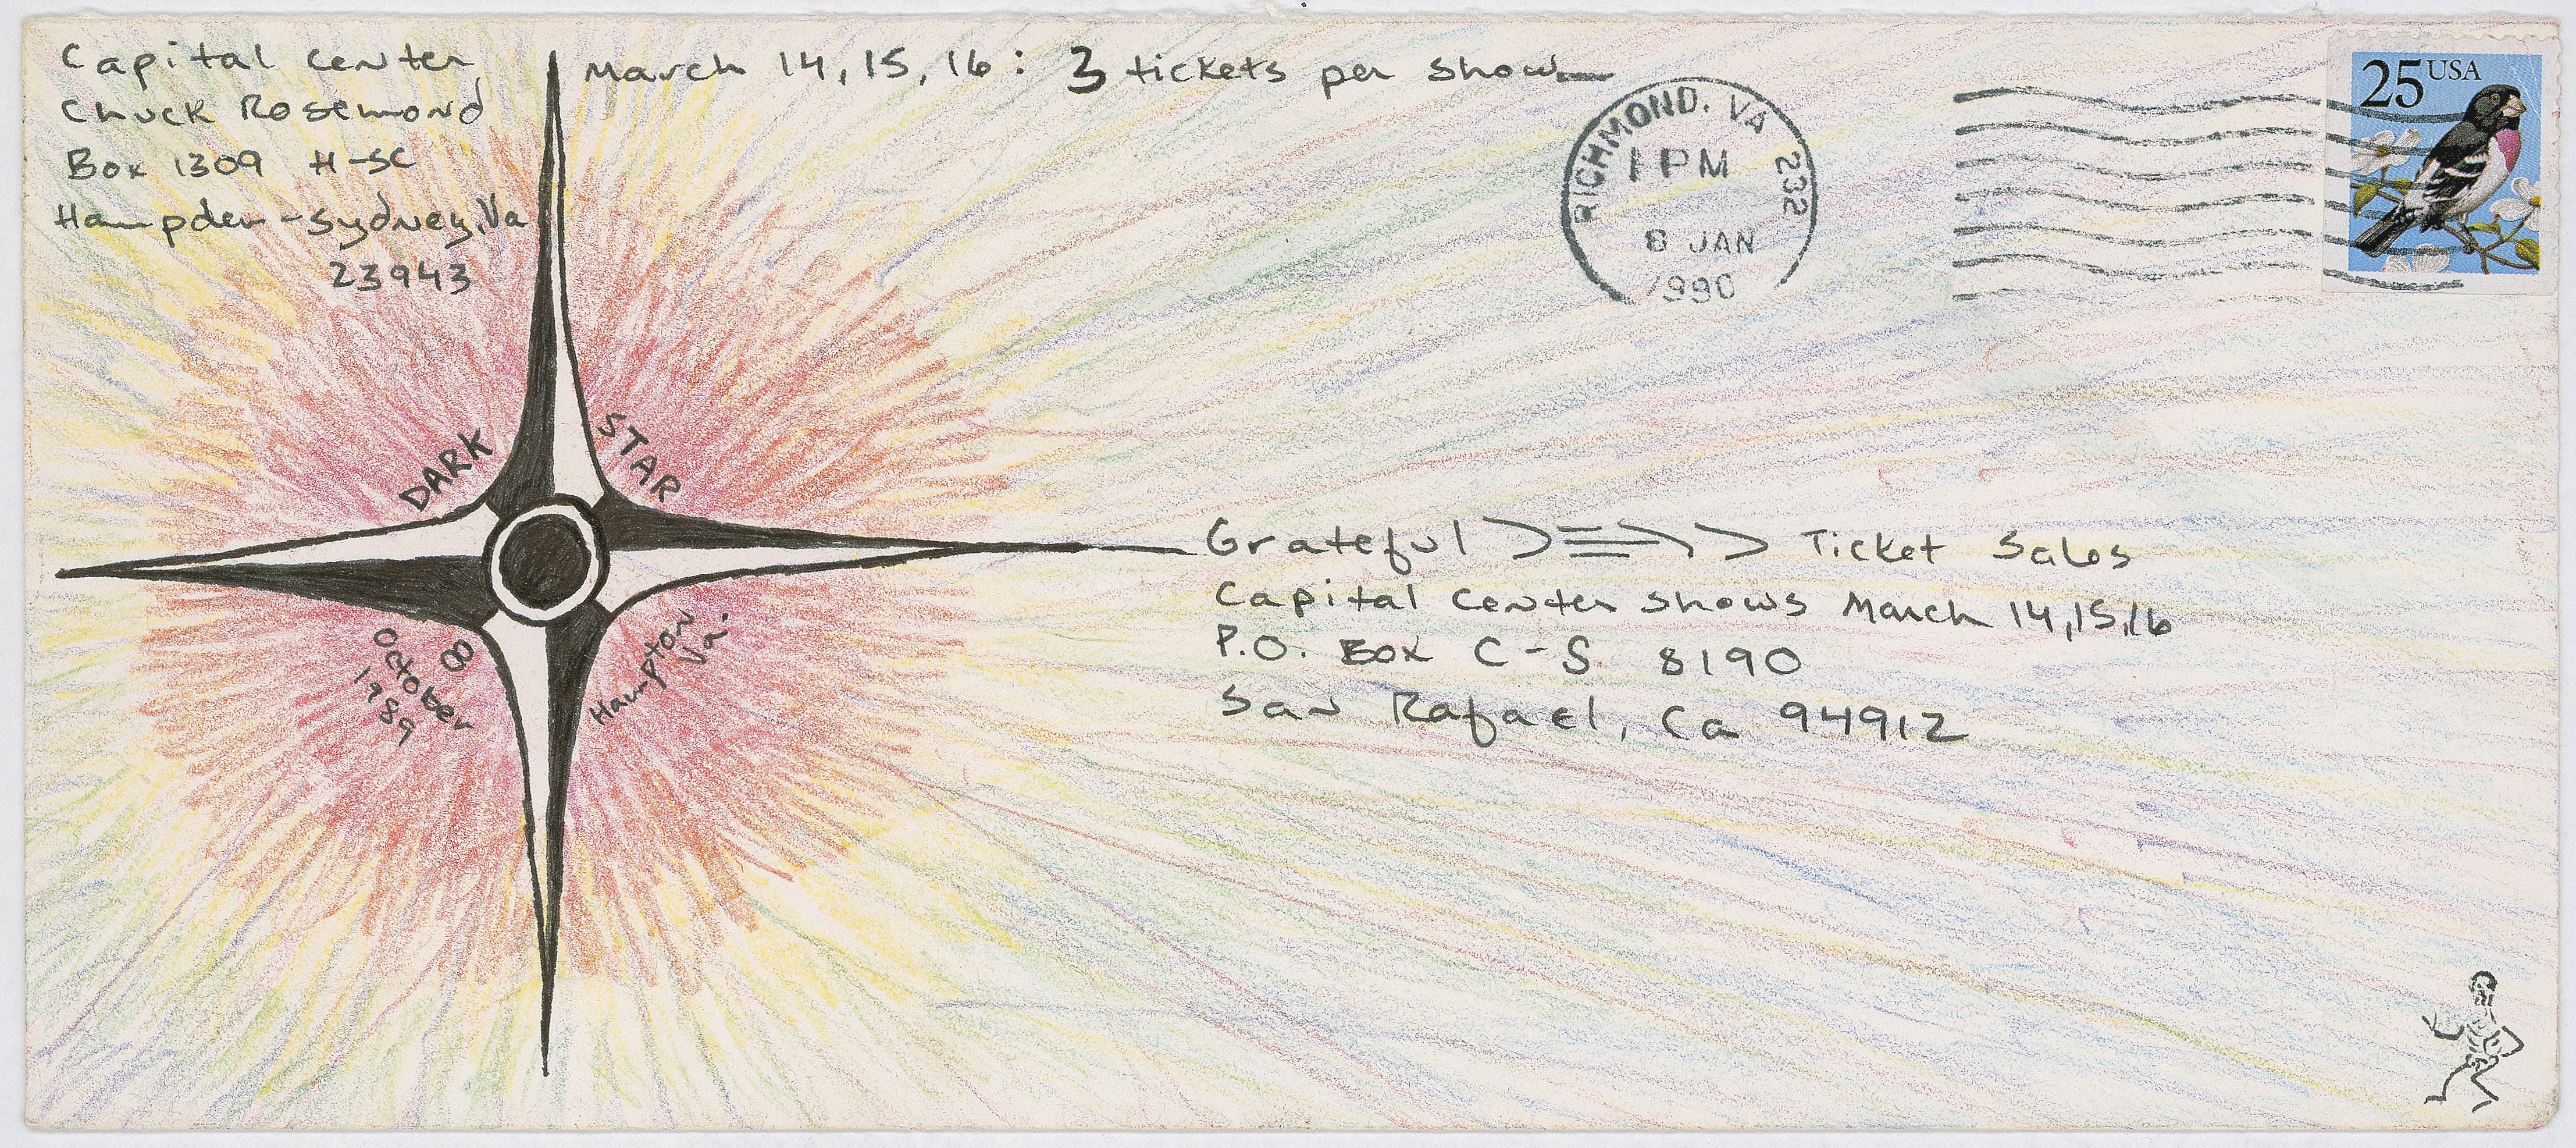 Capital Center
Chuck Rosemond
Box 1309 H-SC
Hampden-Sydney, Va
23943
March 14, 15, 16: 3 tickets per show
RICHMOND, VA 232
1 PM
8 JAN
1990
25 USA
DARK STAR
8
October
1989
Hampton
Va.
Grateful Ticket Sales
Capital Center shows March 14, 15, 16
P.O. Box C-S 8190
San Rafael, Ca 94912